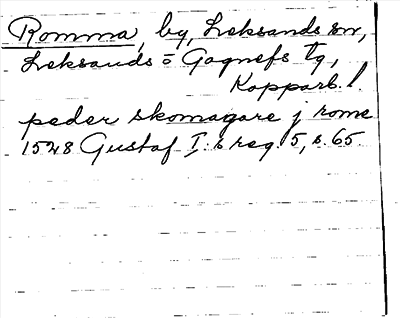 Romma, by, Leksands sn,
Leksands o Gagnefs tg,
Kopparb. l
peder skomagare j rome
1528 Gustaf I:s reg. 5, s. 65.